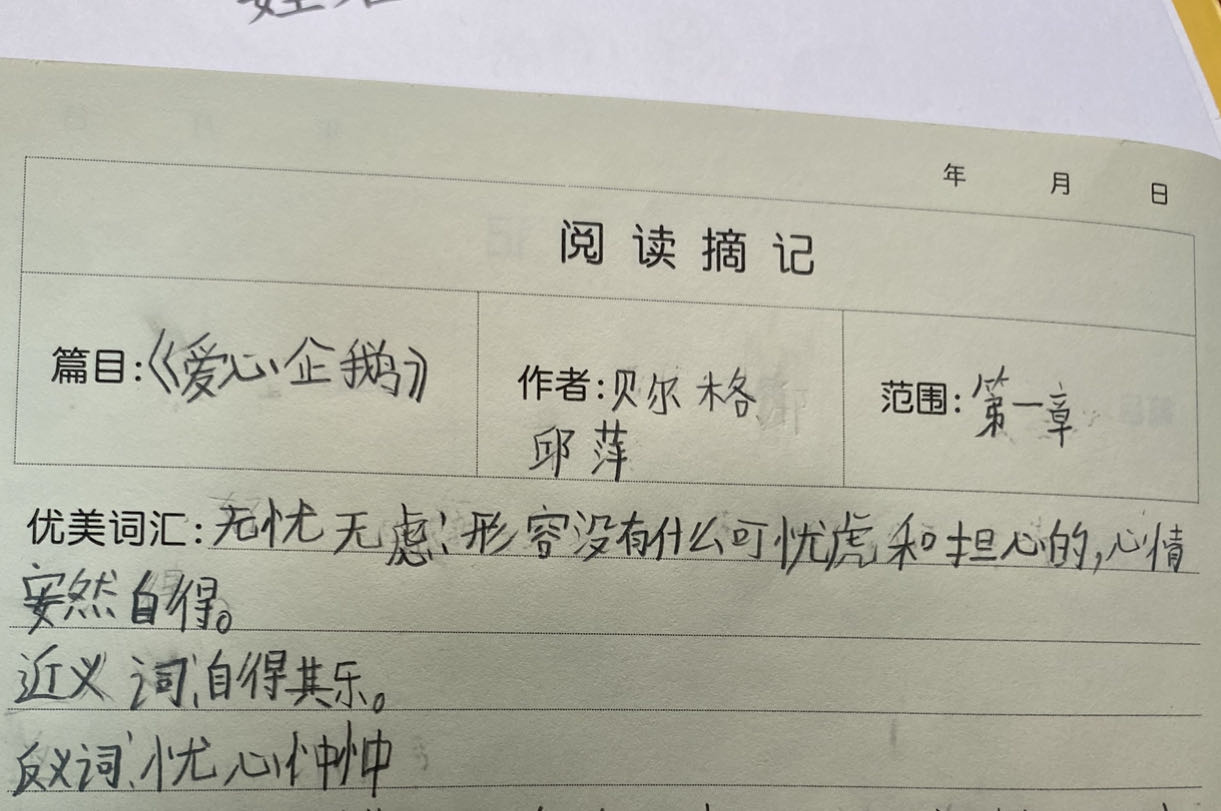 年 月 日
阅读摘记
篇目:《爱心企鹅》 作者:贝尔格 范围:第一章
邱萍
优美词汇:无忧无虑:形容没有什么可忧虑和担心的,心情
安然自得。
近义词:自得其乐。
反义词:忧心忡忡